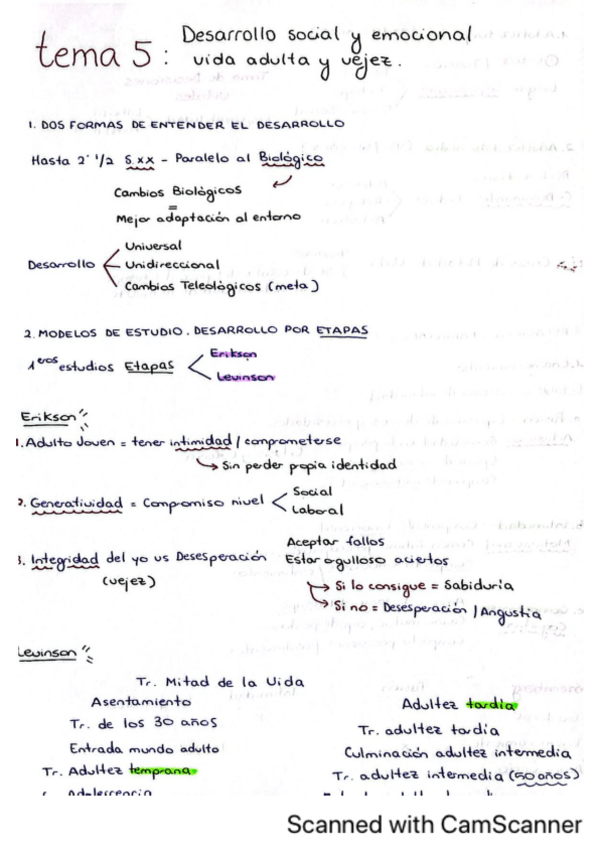 tema 5: Desarrollo social y emocional
vida adulta y vejez.
1. DOS FORMAS DE ENTENDER EL DESARROLLO
Hasta 2ª 1/2 S.XX - Paralelo al Biológico
Cambios Biológicos
=
Mejor adaptación al entorno
Universal
Desarrollo Unidireccional
Cambios Teleológicos (meta)
2. MODELOS DE ESTUDIO. DESARROLLO POR ETAPAS
1eros estudios Etapas Erikson
Levinson
Erikson
1. Adulto Joven = tener intimidad / comprometerse
Sin perder propia identidad
2. Generatividad = Compromiso nivel Social
Laboral
Aceptar fallos
3. Integridad del yo vs Desesperación Estar ogulloso aciertos
(vejez) Si lo consigue = Sabiduría
Si no = Desesperación / Angustia
Levinson
Tr. Mitad de la Vida
Asentamiento Adultez tardía
Tr. de los 30 años Tr. adultez tardía
Entrada mundo adulto Culminación adultez intermedia
Tr. Adultez temprana Tr. adultez intermedia (50 años)
Scanned with CamScanner